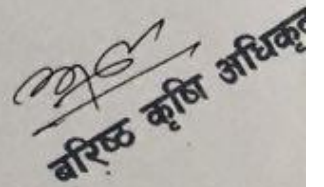 बरिष्ठ कृषि अधिकृत